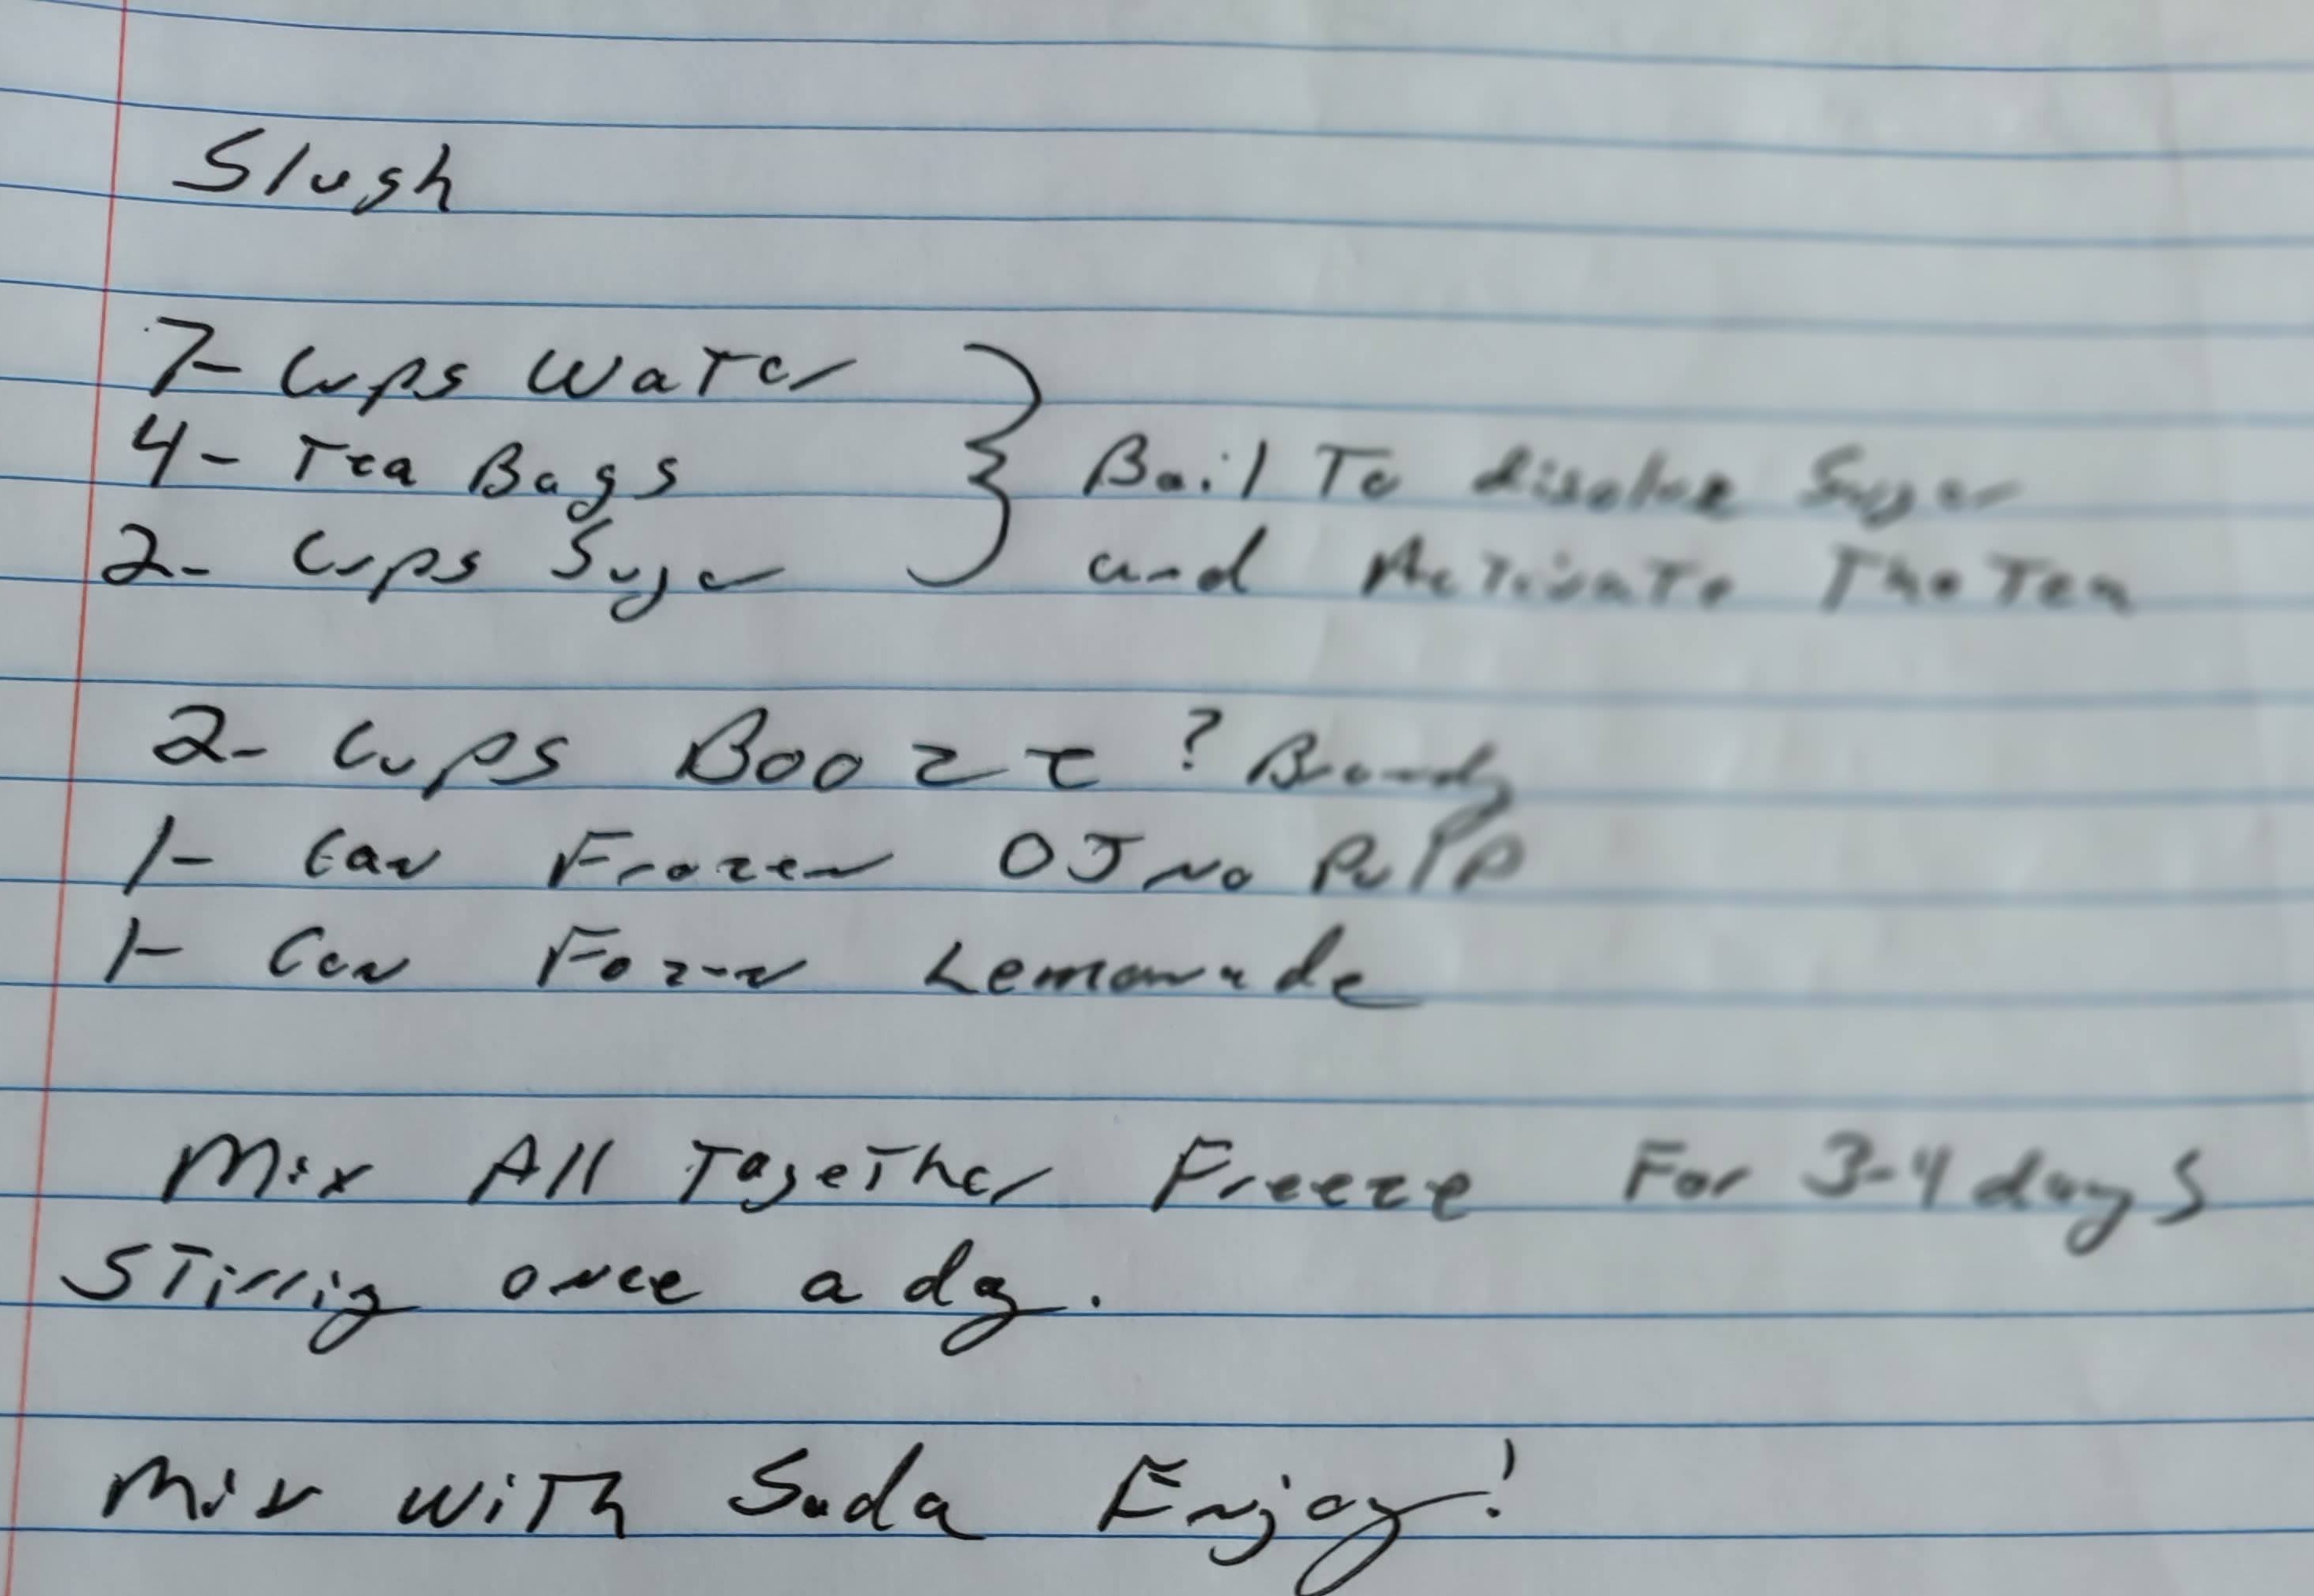 Slush
7- Cups Water
4- Tea Bags
2- Cups Suger
Boil To disolve Suger
and Activate The Tea
2- Cups Booze ? Brandy
1- Can Frozen OJ no Pulp
1- Can Fozen Lemonade
Mix All Together Freeze For 3-4 days
Stirrig once a day.
Mix with Soda Enjoy!